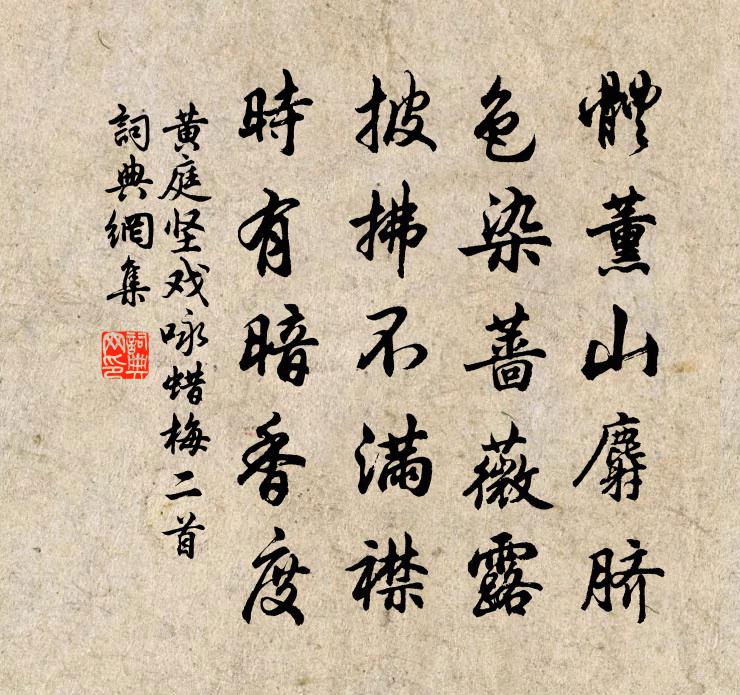 體薰山麝脐
色染薔薇露
披拂不满襟
時有暗香度
黄庭坚戏咏蜡梅二首
詞典網集
詞典网印